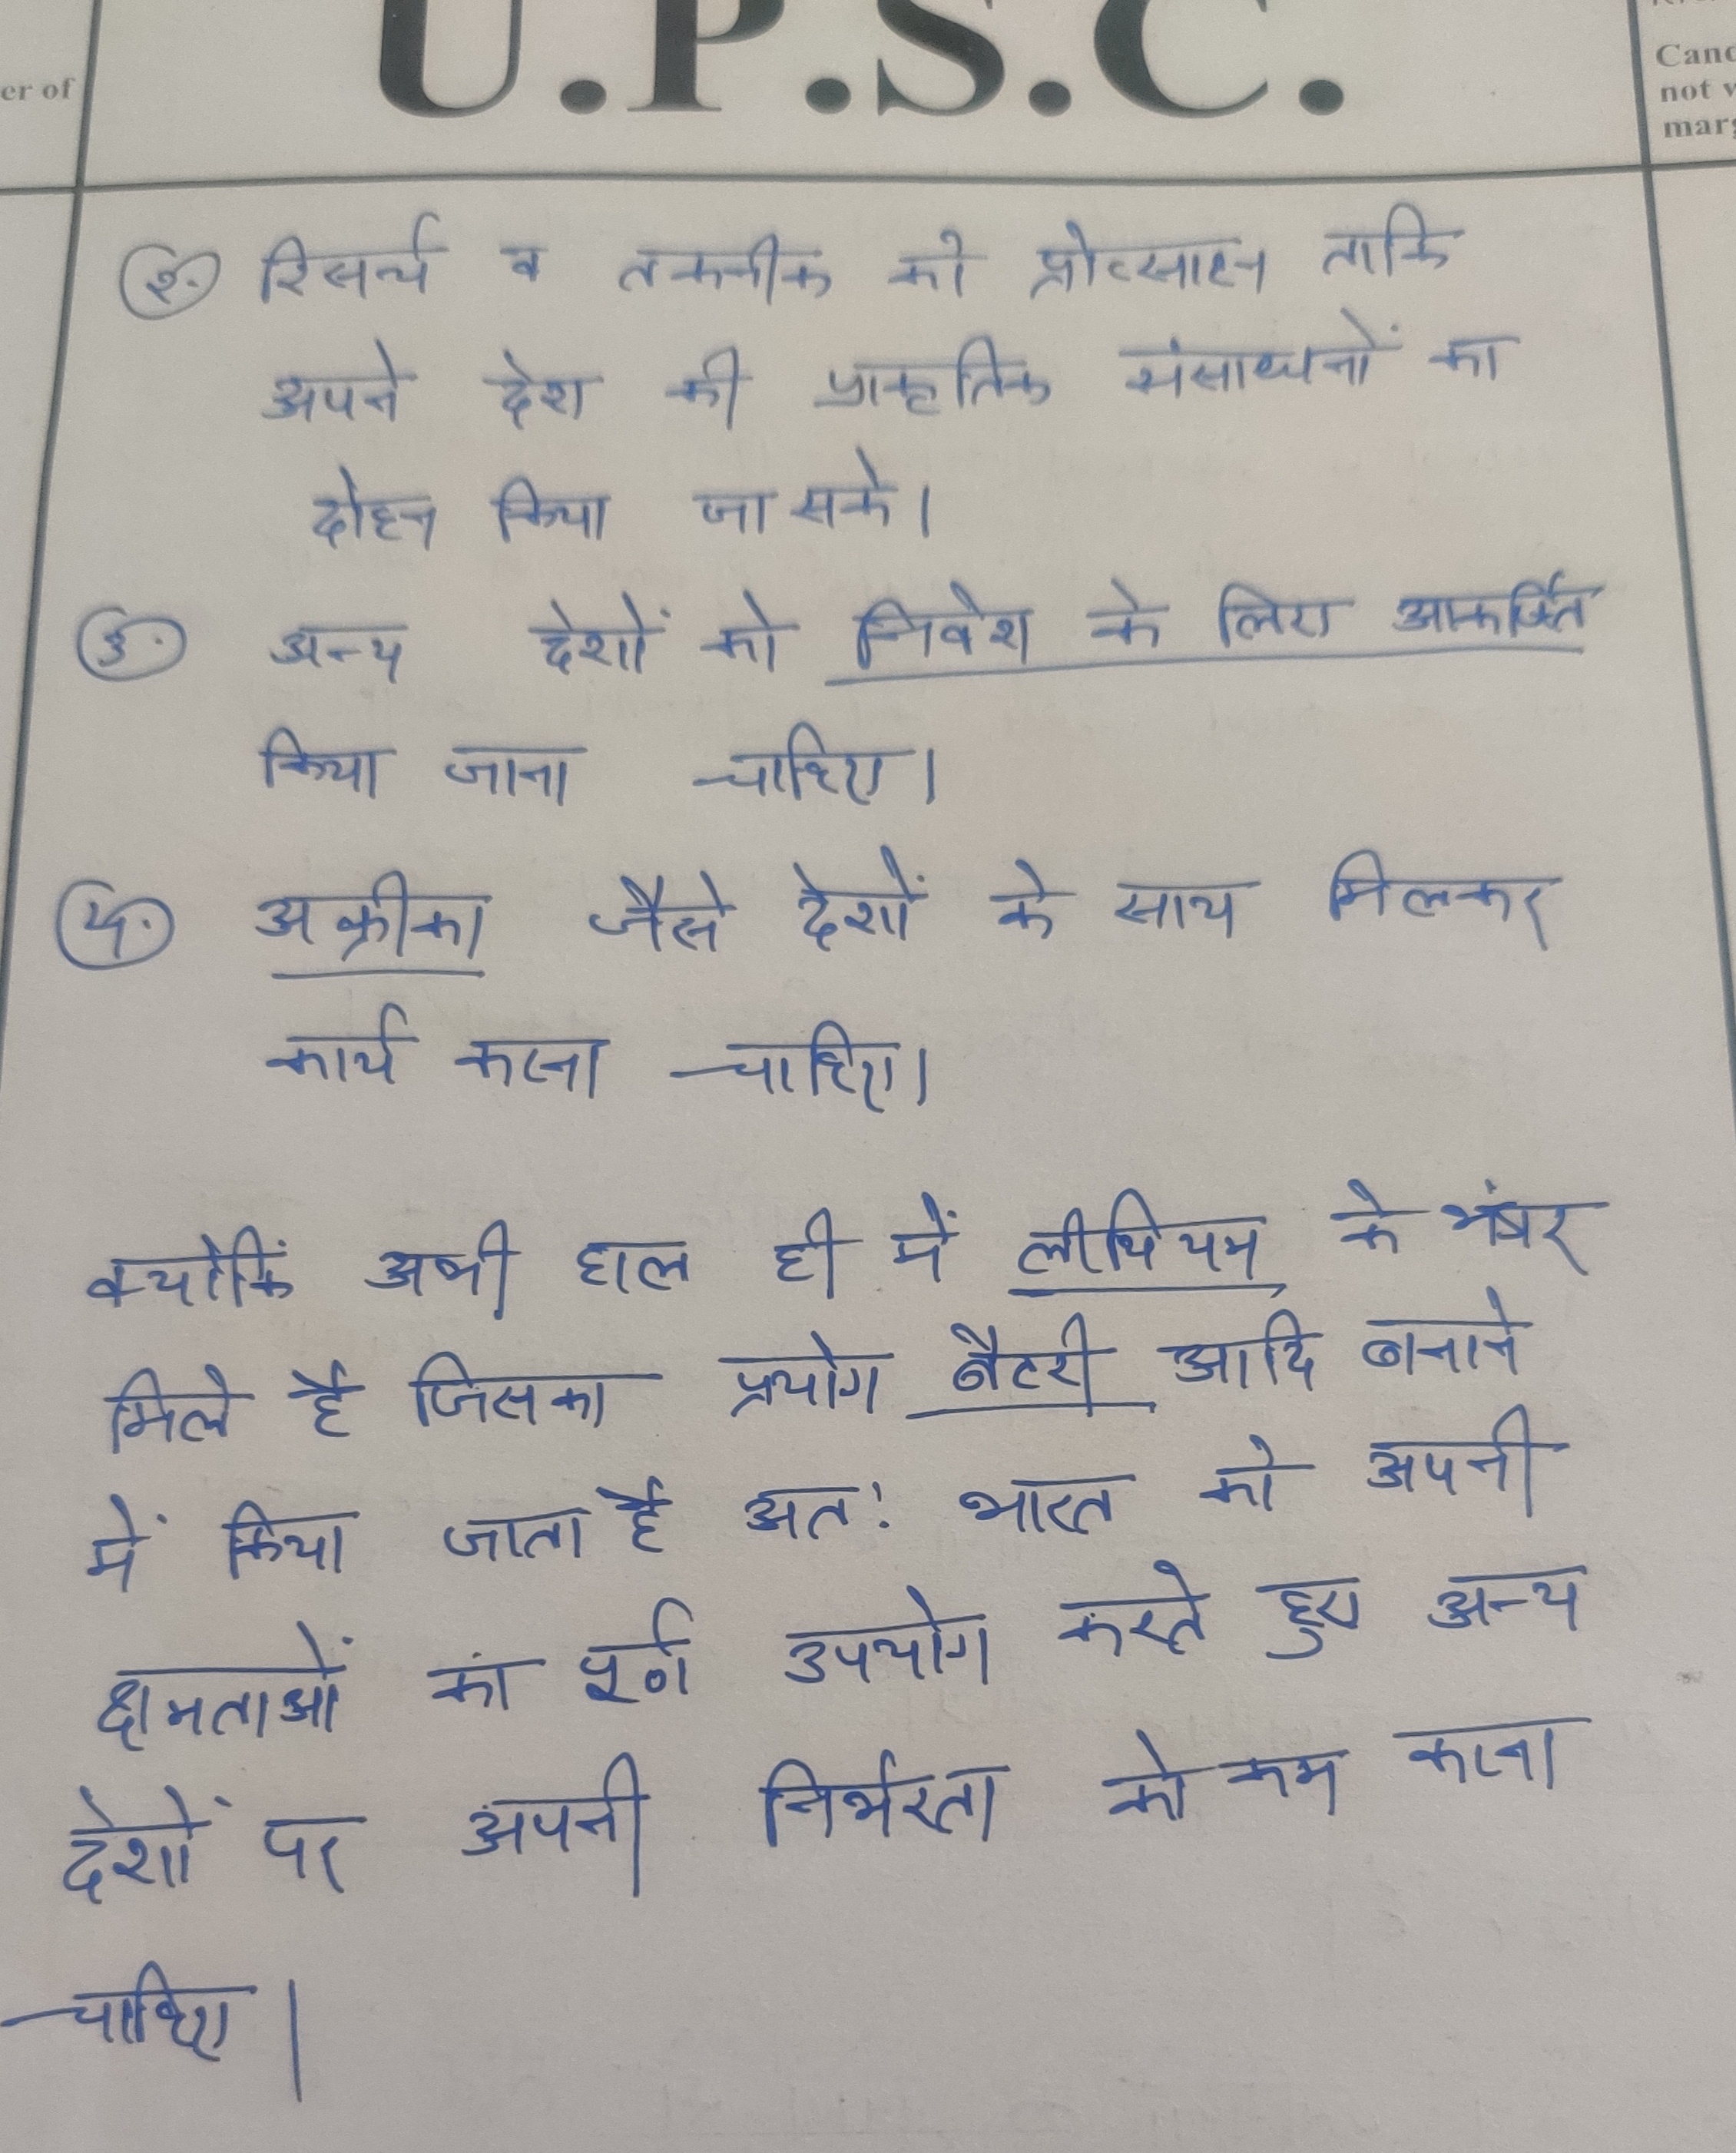 U.P.S.C.
er of
Cand
not w
marg
२. रिसर्च व तकनीक को प्रोत्साहन ताकि
अपने देश की प्राकृतिक संसाधनों का
दोहन किया जा सके।
३. अन्य देशों को निवेश के लिए आकर्जित
किया जाना चाहिए।
४. अफ्रीका जैसे देशों के साथ मिलकर
कार्य करना चाहिए।
क्योंकिं अभी हाल ही में लीथियम के भंडार
मिले है जिसका प्रयोग बैटरी आदि बनाने
में किया जाता है अतः भारत को अपनी
क्षमताओं का पूर्ण उपयोग करते हुए अन्य
देशों पर अपनी निर्भरता को कम करना
चाहिए।